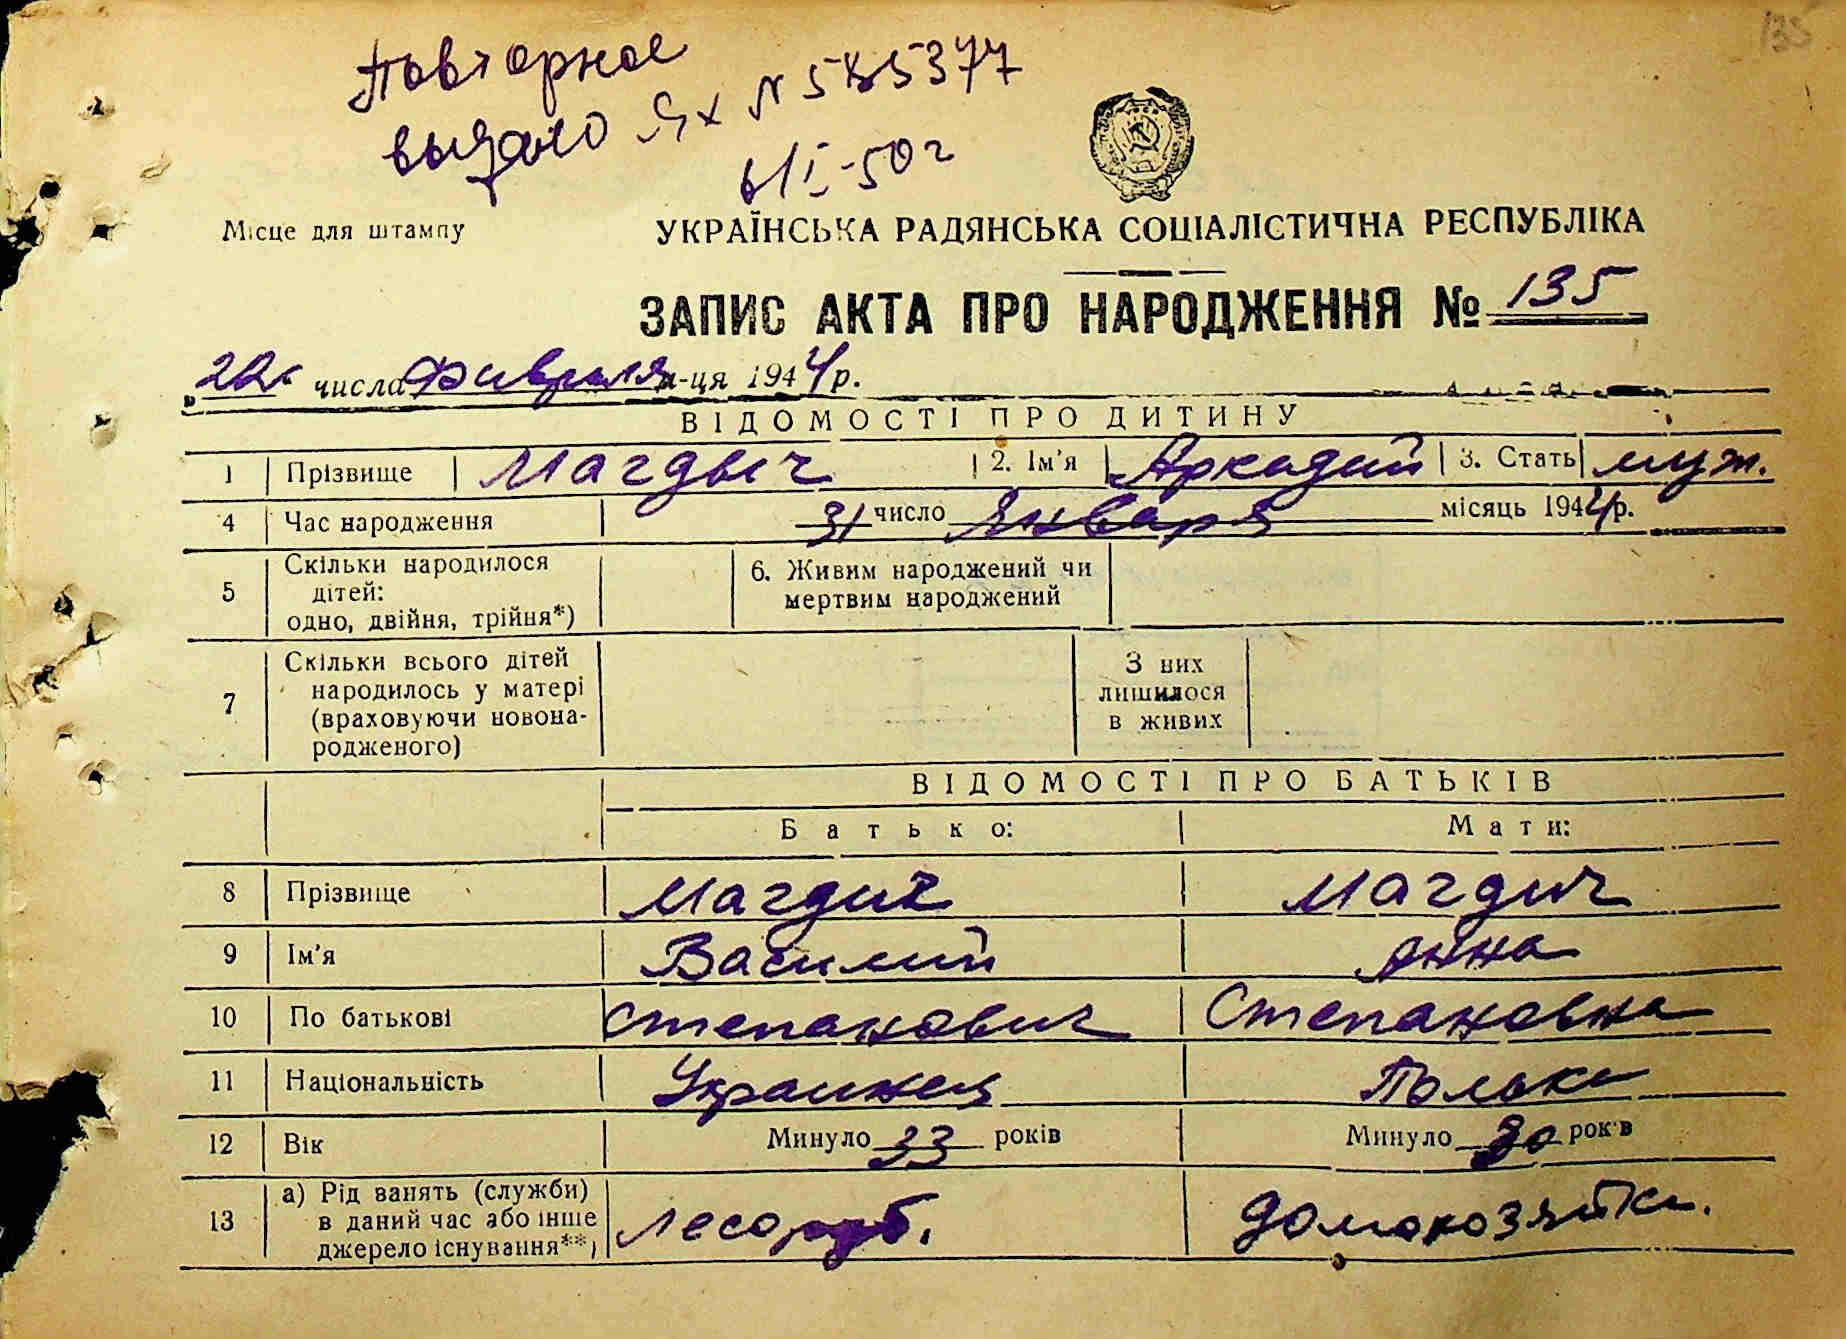 135
Повторное
выдано Ях № 585377
6/I-50 г
Місце для штампу
УКРАЇНСЬКА РАДЯНСЬКА СОЦІАЛІСТИЧНА РЕСПУБЛІКА
ЗАПИС АКТА ПРО НАРОДЖЕННЯ № 135
числа Февраля м-ця 1944 р.
ВІДОМОСТІ ПРО ДИТИНУ
1 Прізвище Магдыч 2. Ім'я Аркадий 3. Стать муж.
4 Час народження 31 число Января місяць 1944 р.
5 Скільки народилося дітей: одно, двійня, трійня*) 6. Живим народжений чи мертвим народжений
7 Скільки всього дітей народилось у матері (враховуючи новона-родженого) З них лишилося в живих
ВІДОМОСТІ ПРО БАТЬКІВ
Батько: Мати:
8 Прізвище Магдич Магдич
9 Ім'я Василий Анна
10 По батькові Степанович Степановна
11 Національність Украинец Полька
12 Вік Минуло 33 років Минуло 30 років
13 а) Рід занять (служби) в даний час або інше джерело існування**) Лесоруб. Домохозяйка.